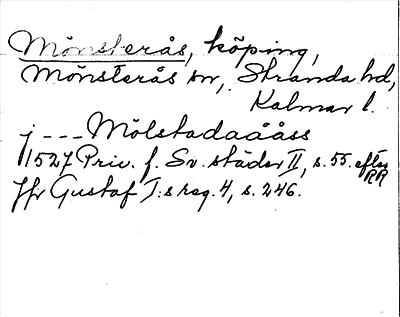 Mönsterås, köping,
Mönsterås sn, Stranda hd,
Kalmar l.
j --- Mölstadaåås
1527 Priv. f. Sv. städer II, s. 55. efter RR
Jfr Gustaf I:s reg. 4, s. 246.